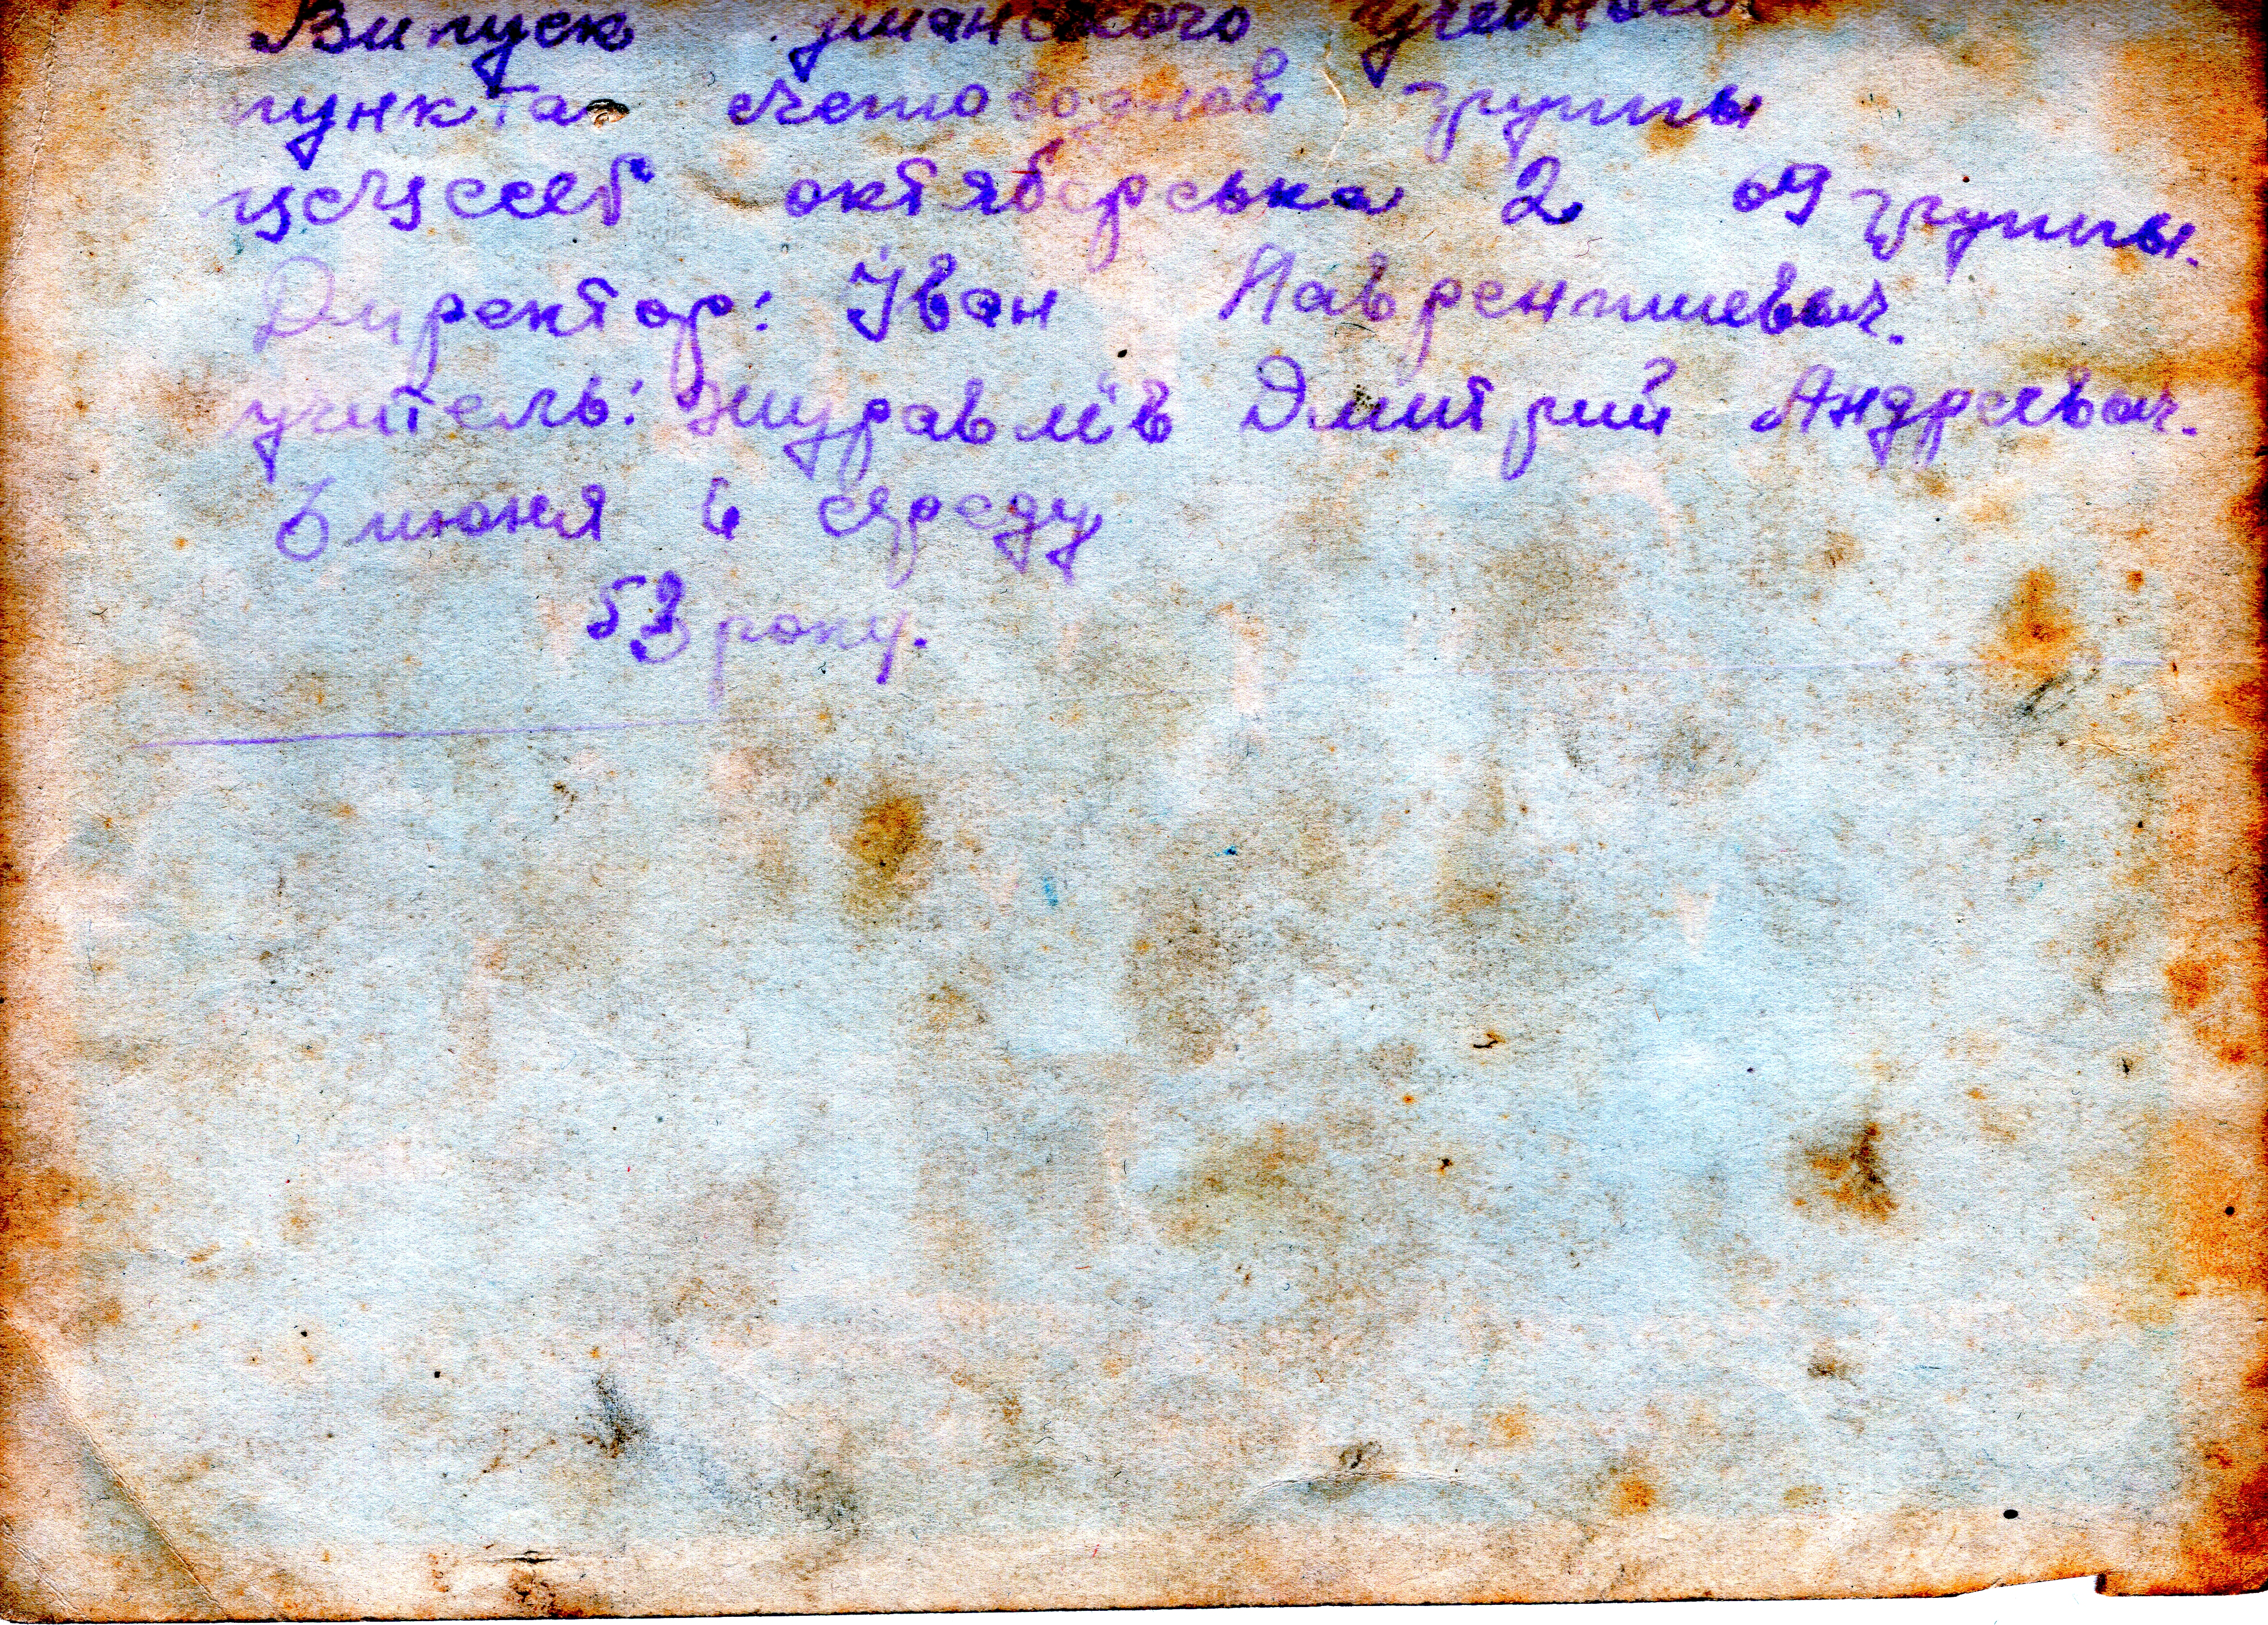 Випуск уманского учебного
пункта счетоводной групы
октябрська 2 ой групы.
Директор: Іван Лаврентиевич.
учитель: Журавлів Дмитрий Андреевич.
6 июня в среду
53 року.